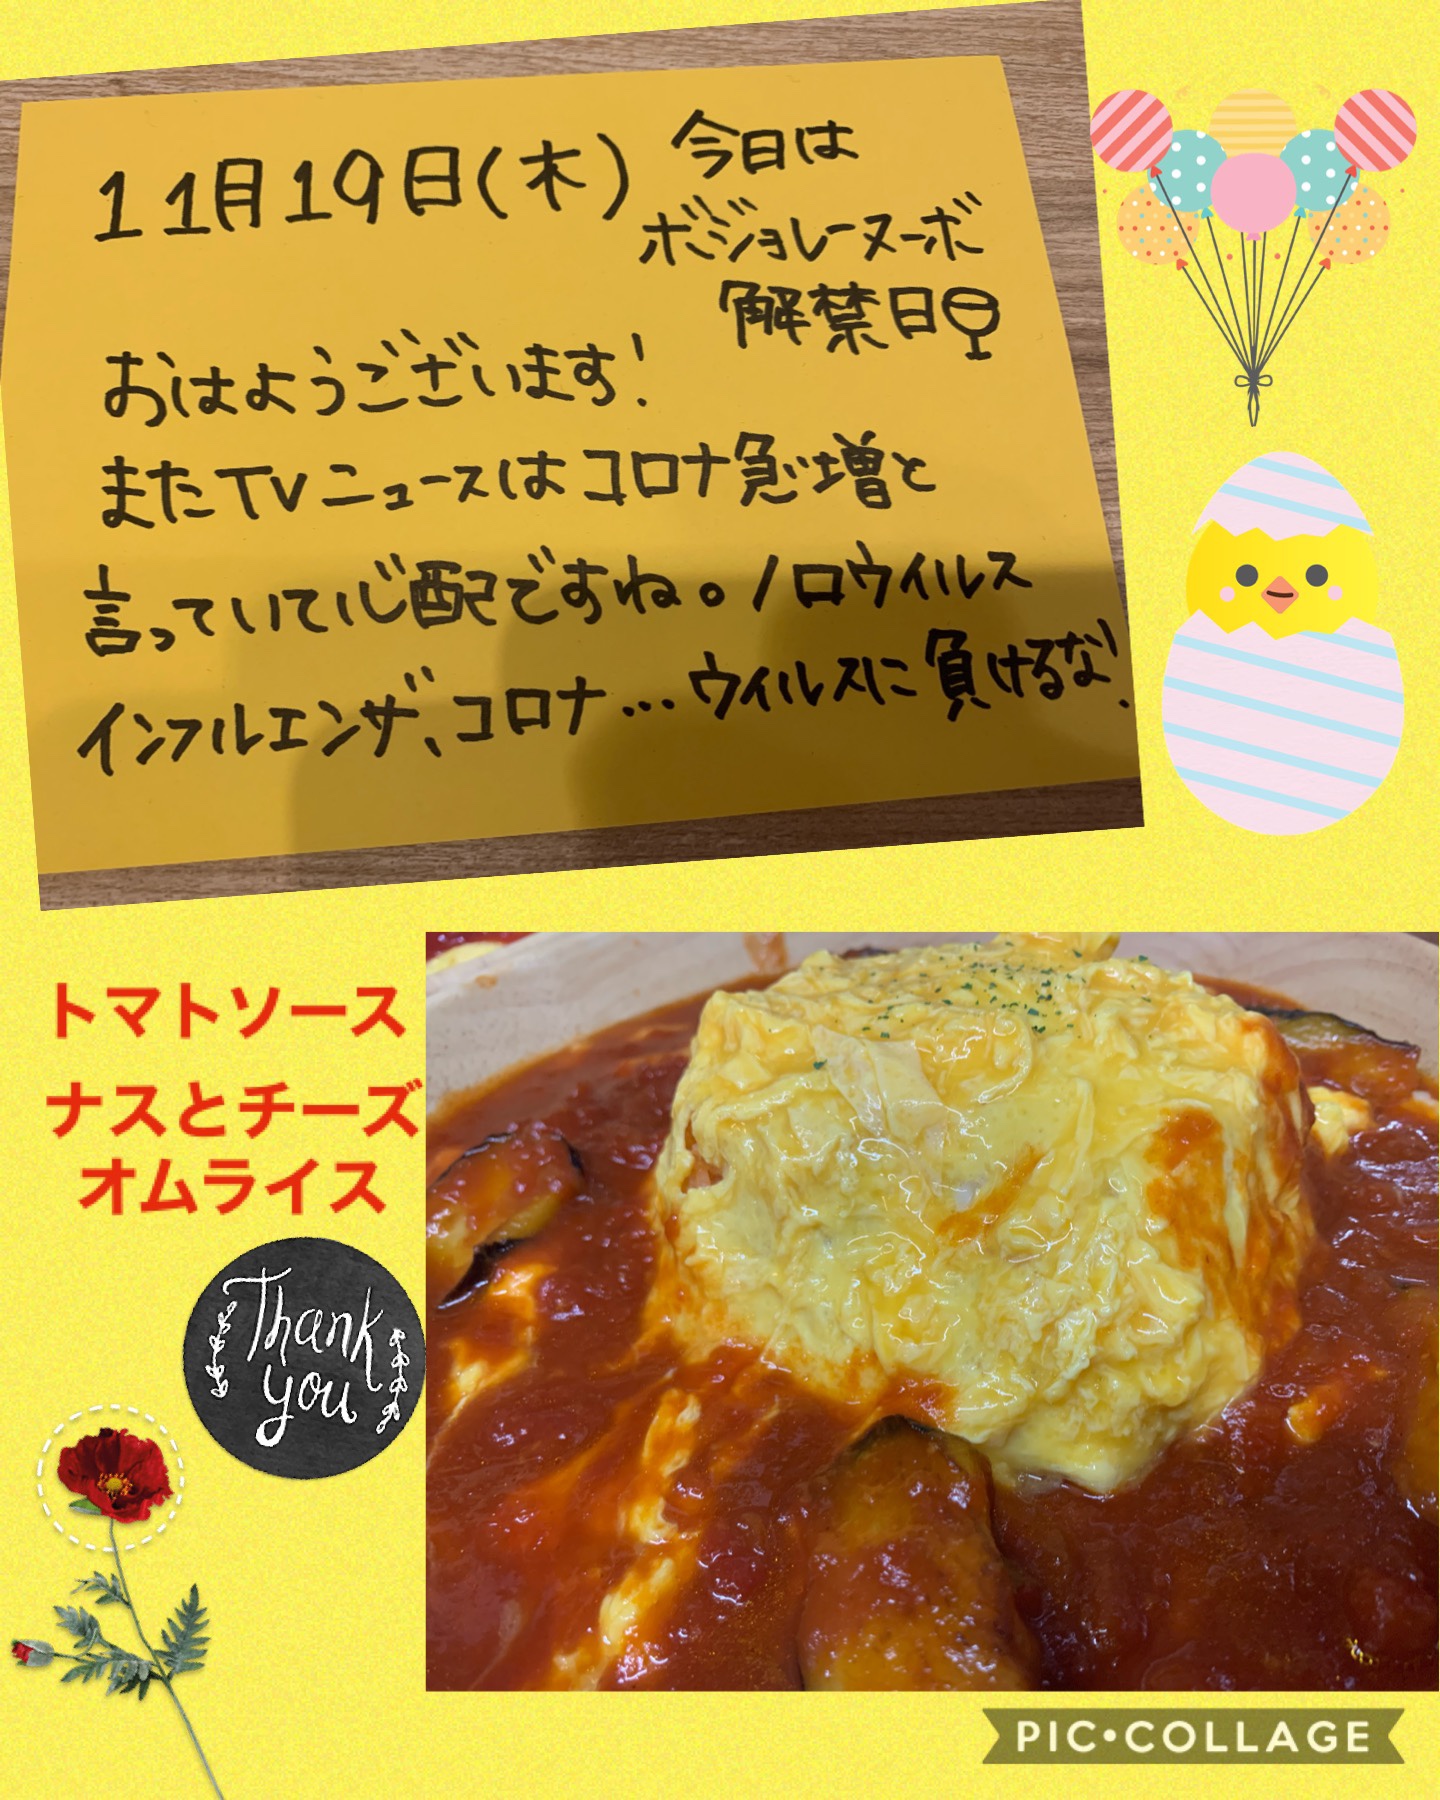 11月19日(木)
今日は
ボジョレーヌーボ
解禁日
おはようございます!
またTVニュースはコロナ急増と
言っていて心配ですね。ノロウイルス
インフルエンザ、コロナ...ウイルスに負けるな!
トマトソース
ナスとチーズ
オムライス
Thank
you
PIC•COLLAGE